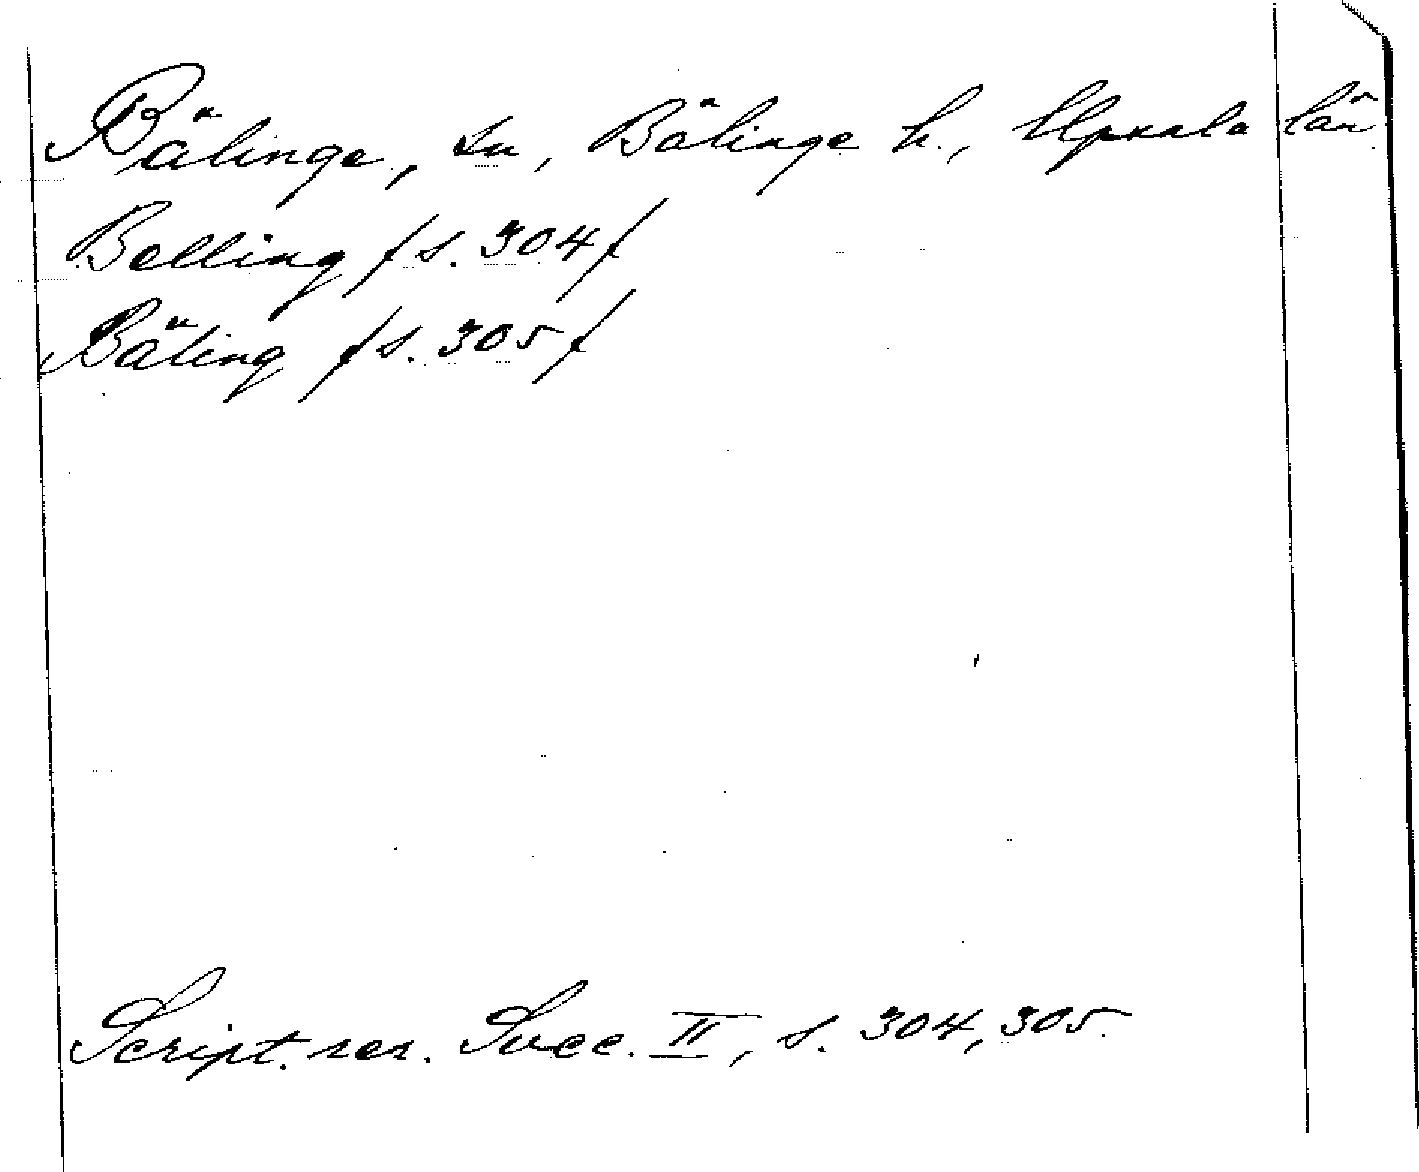 Bälinge, sn, Bälinge h., Upsala län
Belling /s. 304/
Bäling /s. 305/
Script. rer. Svec. II, s. 304, 305.